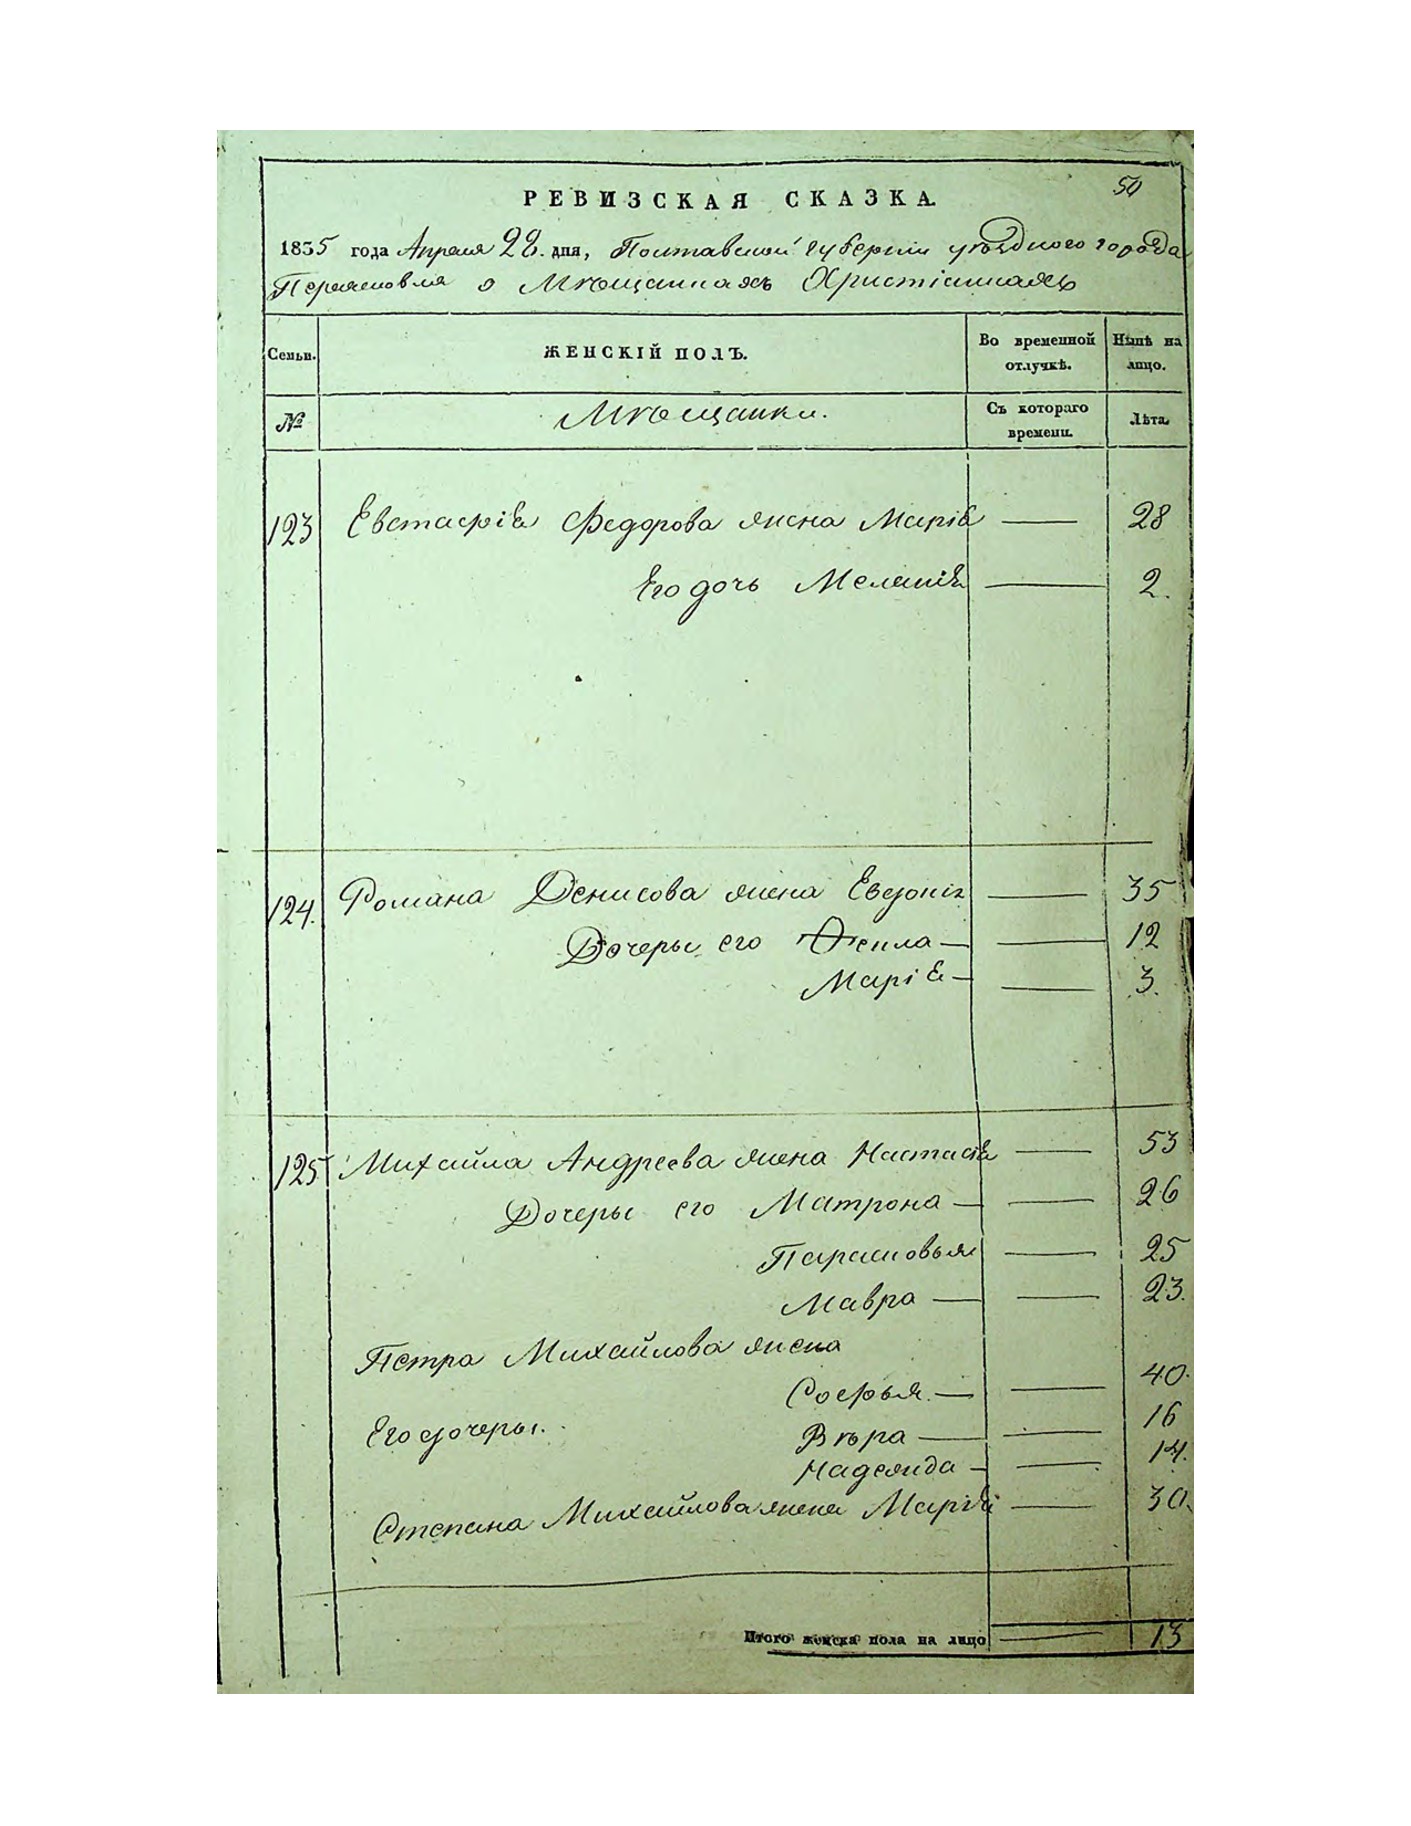 50
РЕВИЗСКАЯ СКАЗКА.
1835 года Апреля 22. дня, Полтавской губернии уѣзднаго города
Переяславля о Мѣщанахъ Христіанахъ
Семьи. ЖЕНСКІЙ ПОЛЪ. Во временной отлучкѣ. Нынѣ на лицо.
№ Мѣщанки. Съ котораго времени. Лѣта.
123 Евстафія Федорова жена Марія — 28
Его дочь Меланія — 2.
124. Романа Денисова жена Евдокія — 35
Дочеры его Фекла — — 12
Марія — — 3.
125 Михайла Андреева жена Настасія — 53
Дочеры его Матрона — — 26
Парасковья — 25
Мавра — — 23.
Петра Михайлова жена
Софья. — — 40.
Его дочеры. Вѣра — — 16
Надежда — — 14.
Степана Михайлова жена Марія — 30.
Итого женска пола на лицо — 13